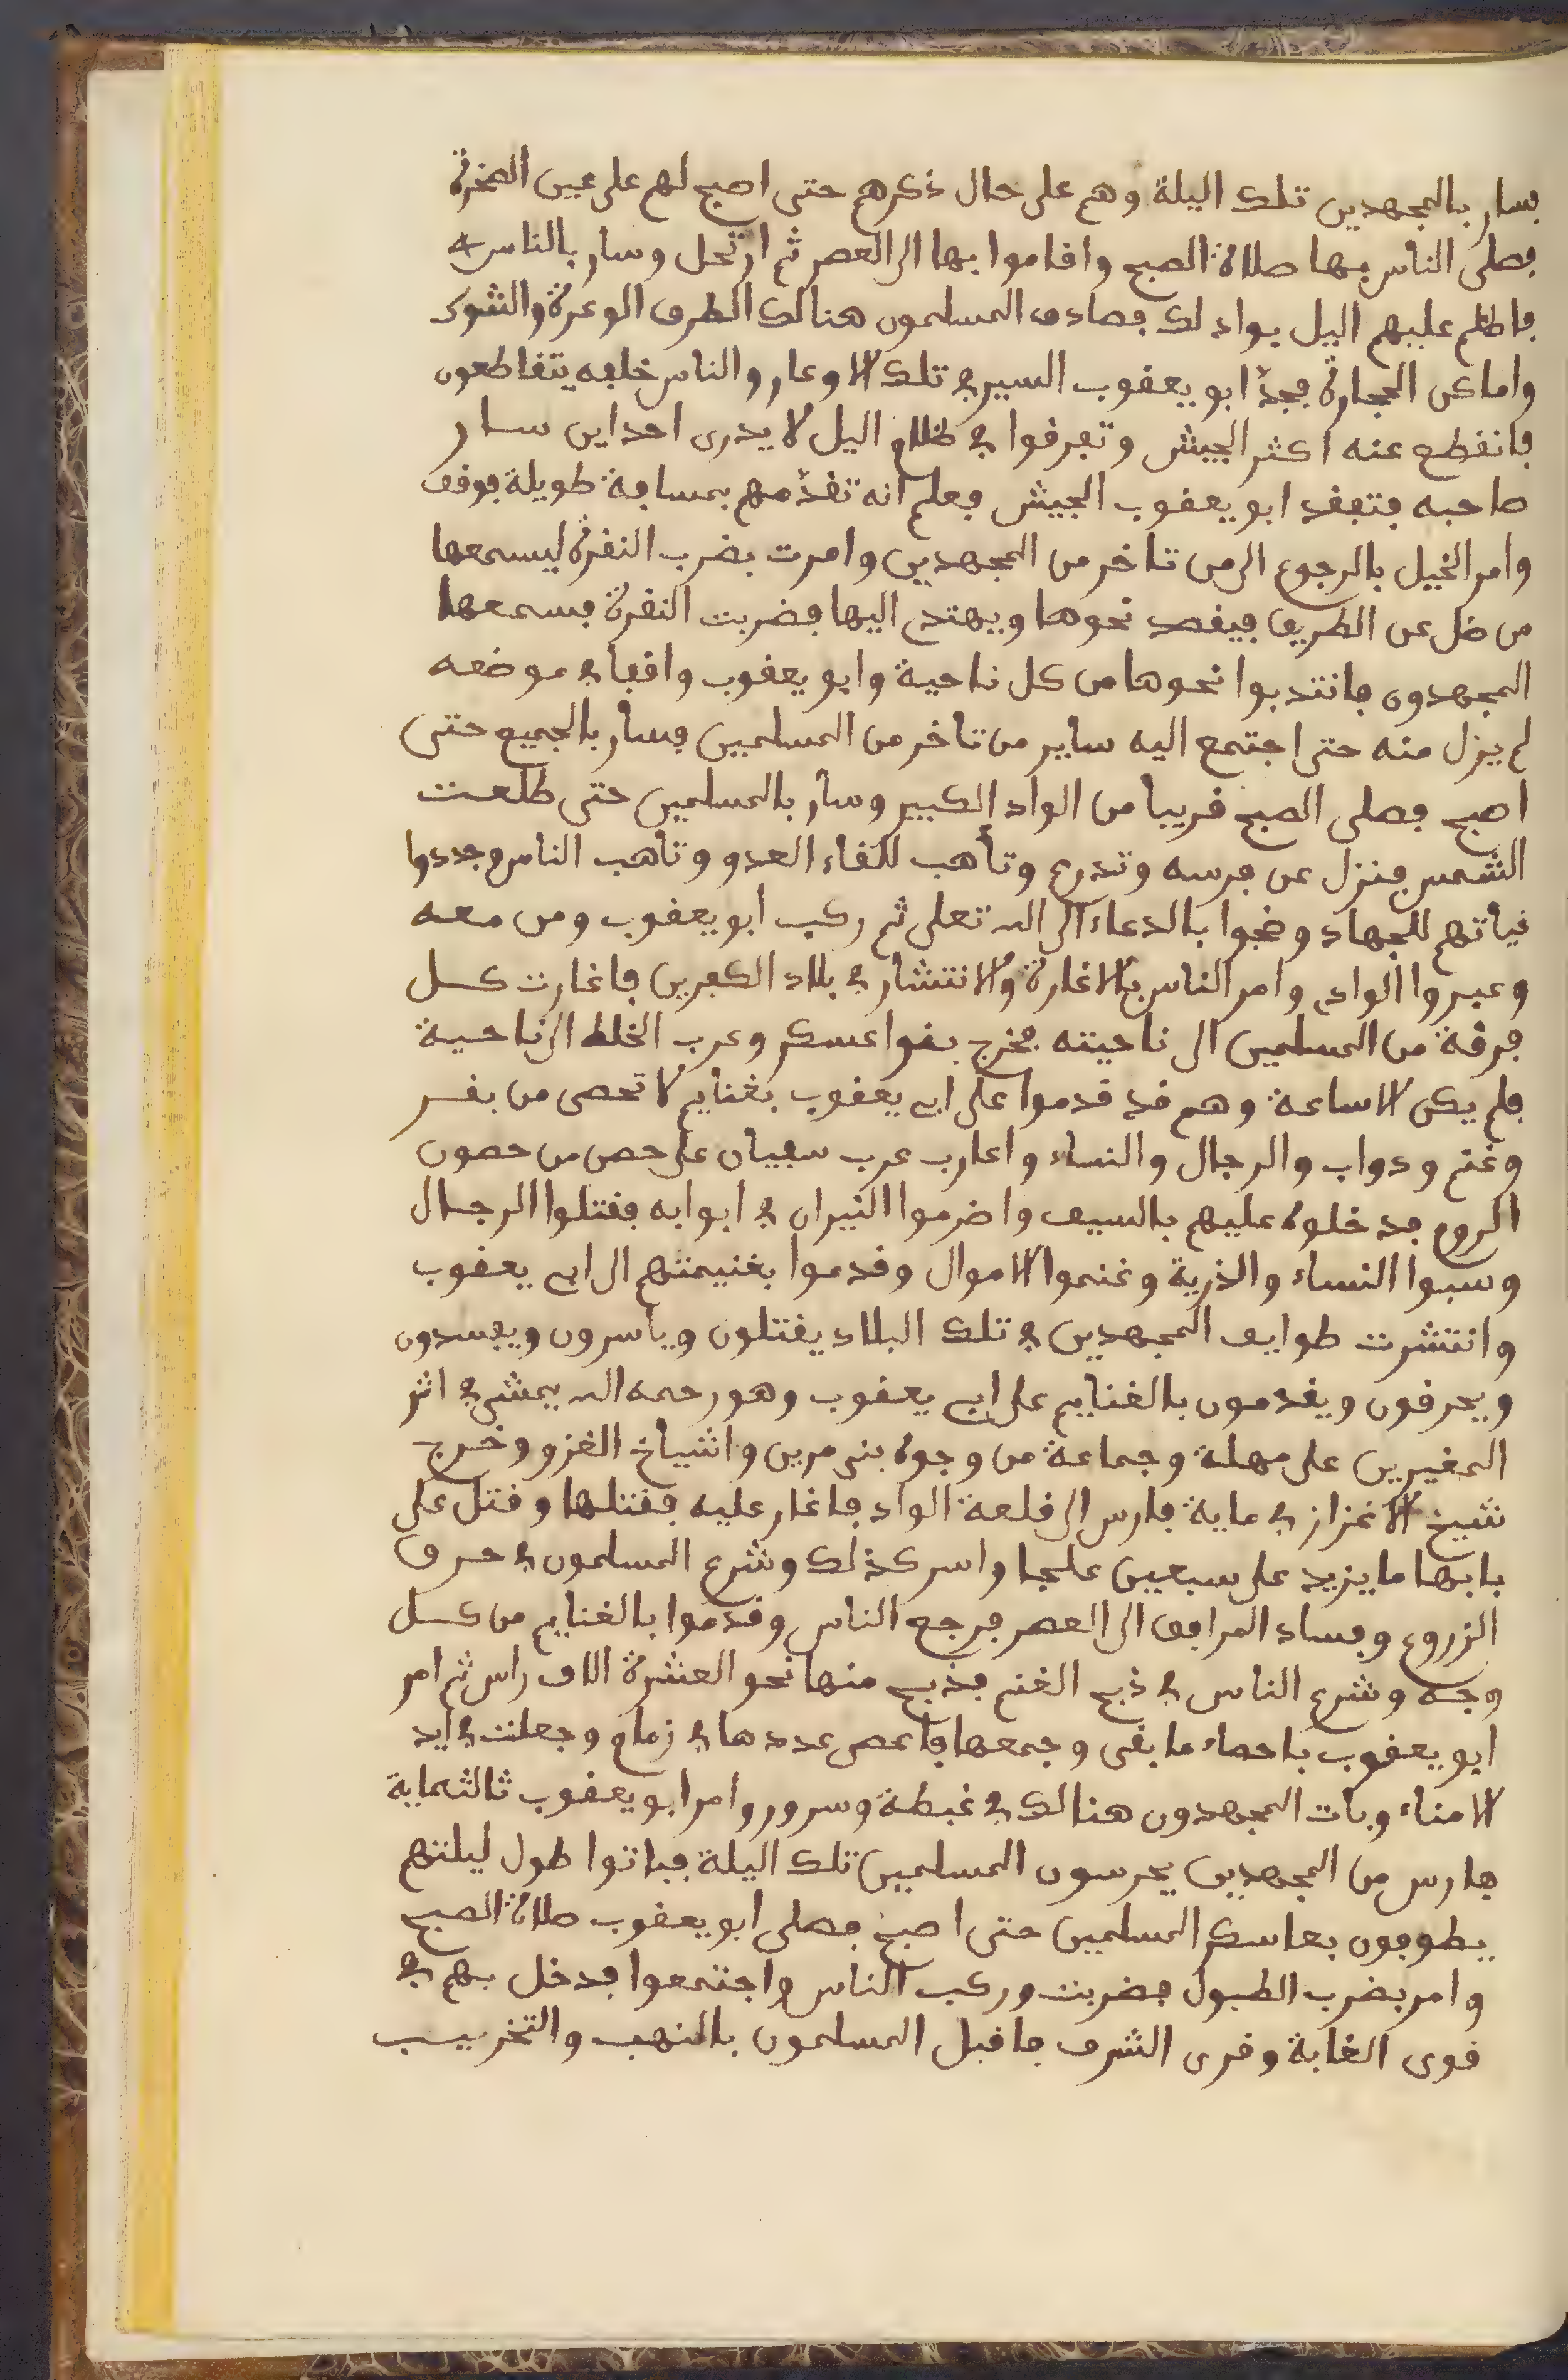 فسار بالمجهدين تلك اليلة وهم على حال ذكرهم حتى اصبح لهم على عين الصخرة
فصلى الناس بها صلاة الصبح واقاموا بها الى العصر ثم ارتحل وسار بالناس
فاظلم عليهم اليل بواد لك فصادف المسلمون هنالك الطرق الوعرة والشوك
واماكن الحجارة فجدّ ابو يعقوب السير في تلك الاوعار والناس خلفه يتقاطعون
فانقطع عنه اكثر الجيش وتفرقوا في ظلام اليل لا يدرى احد اين سار
صاحبه فتفقد ابو يعقوب الجيش فعلم انه تقدّمهم بمسافة طويلة فوقف
وامر الخيل بالرجوع الى من تاخر من المجهدين وامرت بضرب النقرة ليسمعها
من ضل عن الطريق فيقصد نحوها ويهتدي اليها فضربت النقرة فسمعها
المجهدون فانتدبوا نحوها من كل ناحية وابو يعقوب واقفا في موضعه
لم يزل منه حتى اجتمع اليه ساير من تاخر من المسلمين فسار بالجميع حتى
اصبح فصلى الصبح قريبا من الواد الكبير وسار بالمسلمين حتى طلعت
الشمس فنزل عن فرسه وتدرع وتأهب للقاء العدو وتاهب الناس وجددوا
نياتهم للجهاد وضجوا بالدعاء الى الله تعلى ثم ركب ابو يعقوب ومن معه
وعبروا الوادي وامر الناس بالاغارة والانتشار في بلاد الكفرين فاغارت كل
فرقة من المسلمين الى ناحيته فخرج بنوا عسكر وعرب الخلط الى ناحية
فلم يكن الا ساعة وهم قد قدموا على ابي يعقوب بغنايم لا تحصى من بقر
وغنم ودواب والرجال والنساء واغارب عرب سفيان على حصن من حصون
الروم فدخلوه عليهم بالسيف واضرموا النيران في ابوابه فقتلوا الرجال
وسبوا النساء والذرية وغنموا الاموال وقدموا بغنيمتهم الى ابي يعقوب
وانتشرت طوايف المجهدين في تلك البلاد يقتلون وياسرون ويفسدون
ويحرقون ويقدمون بالغنايم على ابي يعقوب وهو رحمه الله يمشي في اثر
المغيرين على مهلة وجماعة من وجوه بنى مرين واشياخ الغزو وخرج
شيخ الاغزاز في ماية فارس الى قلعة الواد فاغار عليه فقتلها وقتل على
بابها ما يزيد على سبعين علجا واسر كذلك وشرع المسلمون في حرق
الزروع وفساد المرافق الى العصر فرجع الناس وقدموا بالغنايم من كل
وجه وشرع الناس في ذبح الغنم فذبح منها نحو العشرة الاف راس ثم امر
ابو يعقوب باحصاء ما بقى وجمعها فاحصى عددها في زمام وجعلت في ايد
الامناء وبات المجهدون هنالك في غبطة وسرور وامر ابو يعقوب ثالثماية
فارس من المجهدين يحرسون المسلمين تلك اليلة فباتوا طول ليلتهم
يطوفون بعاسكر المسلمين حتى اصبح فصلى ابو يعقوب صلاة الصبح
وامر بضرب الطبول فضربت وركب الناس واجتمعوا فدخل بهم في
قوى الغابة وقرى الشرف فاقبل المسلمون بالنهب والتخريب